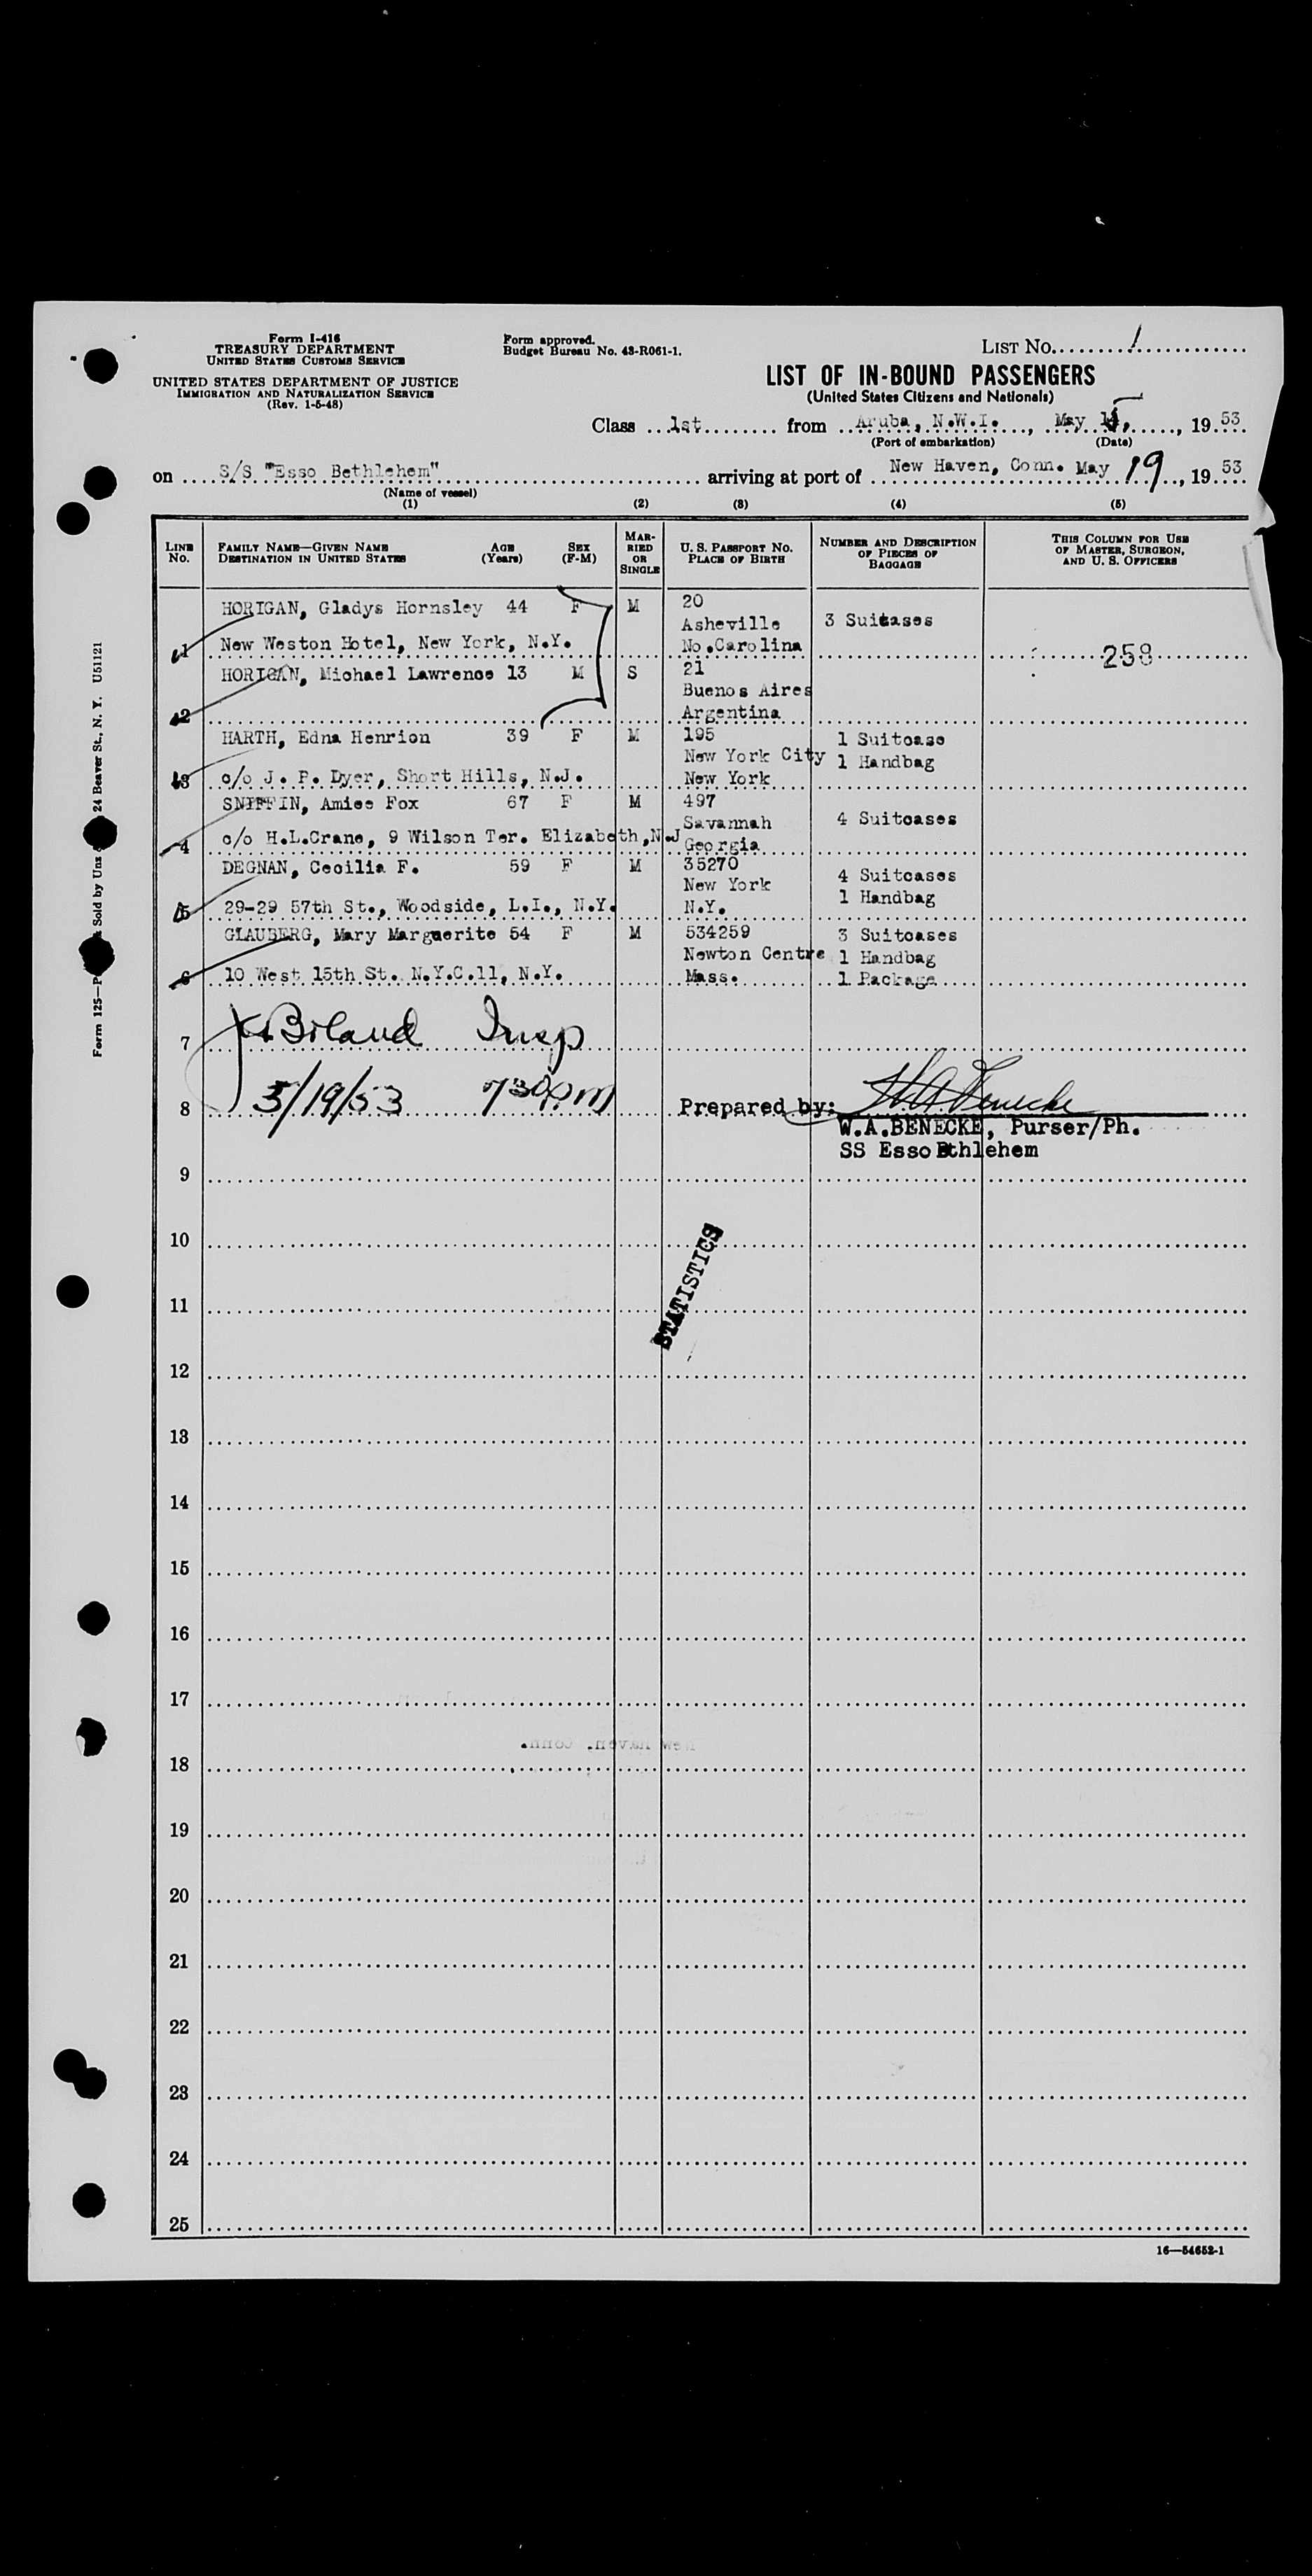 Form I-416
TREASURY DEPARTMENT
UNITED STATES CUSTOMS SERVICE
UNITED STATES DEPARTMENT OF JUSTICE
IMMIGRATION AND NATURALIZATION SERVICE
(Rev. 1-5-48)
Form approved.
Budget Bureau No. 43-R061-1.
LIST NO. 1
LIST OF IN-BOUND PASSENGERS
(United States Citizens and Nationals)
Class 1st from Aruba, N.W.I., May 15, 1953
(Port of embarkation) (Date)
on S/S "Esso Bethlehem" arriving at port of New Haven, Conn. May 19, 1953
(Name of vessel)
(1) (2) (3) (4) (5)
LINE NO.
FAMILY NAME—GIVEN NAME
DESTINATION IN UNITED STATES
AGE (Years)
SEX (F-M)
MARRIED OR SINGLE
U. S. PASSPORT NO.
PLACE OF BIRTH
NUMBER AND DESCRIPTION OF PIECES OF BAGGAGE
THIS COLUMN FOR USE OF MASTER, SURGEON, AND U. S. OFFICERS
HORIGAN, Gladys Hornsley 44 F M 20
Asheville 3 Suitcases
1 New Weston Hotel, New York, N.Y. No.Carolina 258
HORIGAN, Michael Lawrence 13 M S 21
Buenos Aires
2 Argentina
HARTH, Edna Henrion 39 F M 195 1 Suitcase
New York City 1 Handbag
3 c/o J. P. Dyer, Short Hills, N.J. New York
SNIFFIN, Amiee Fox 67 F M 497
Savannah 4 Suitcases
4 c/o H.L.Crane, 9 Wilson Ter. Elizabeth,N.J Georgia
DEGNAN, Cecilia F. 59 F M 35270 4 Suitcases
New York 1 Handbag
5 29-29 57th St., Woodside, L.I., N.Y. N.Y.
GLAUBERG, Mary Marguerite 54 F M 534259 3 Suitcases
Newton Centre 1 Handbag
6 10 West 15th St. N.Y.C.11, N.Y. Mass. 1 Package
7 Boland Insp
8 5/19/53 730pm Prepared by: W A Benecke
W.A.BENECKE, Purser/Ph.
SS Esso Bthlehem
9
10
STATISTICS
11
12
13
14
15
16
17
18
New Haven, Conn.
19
20
21
22
23
24
25
16—54652-1
Sold by Unz
24 Beaver St., N. Y. U51121
Form 125—